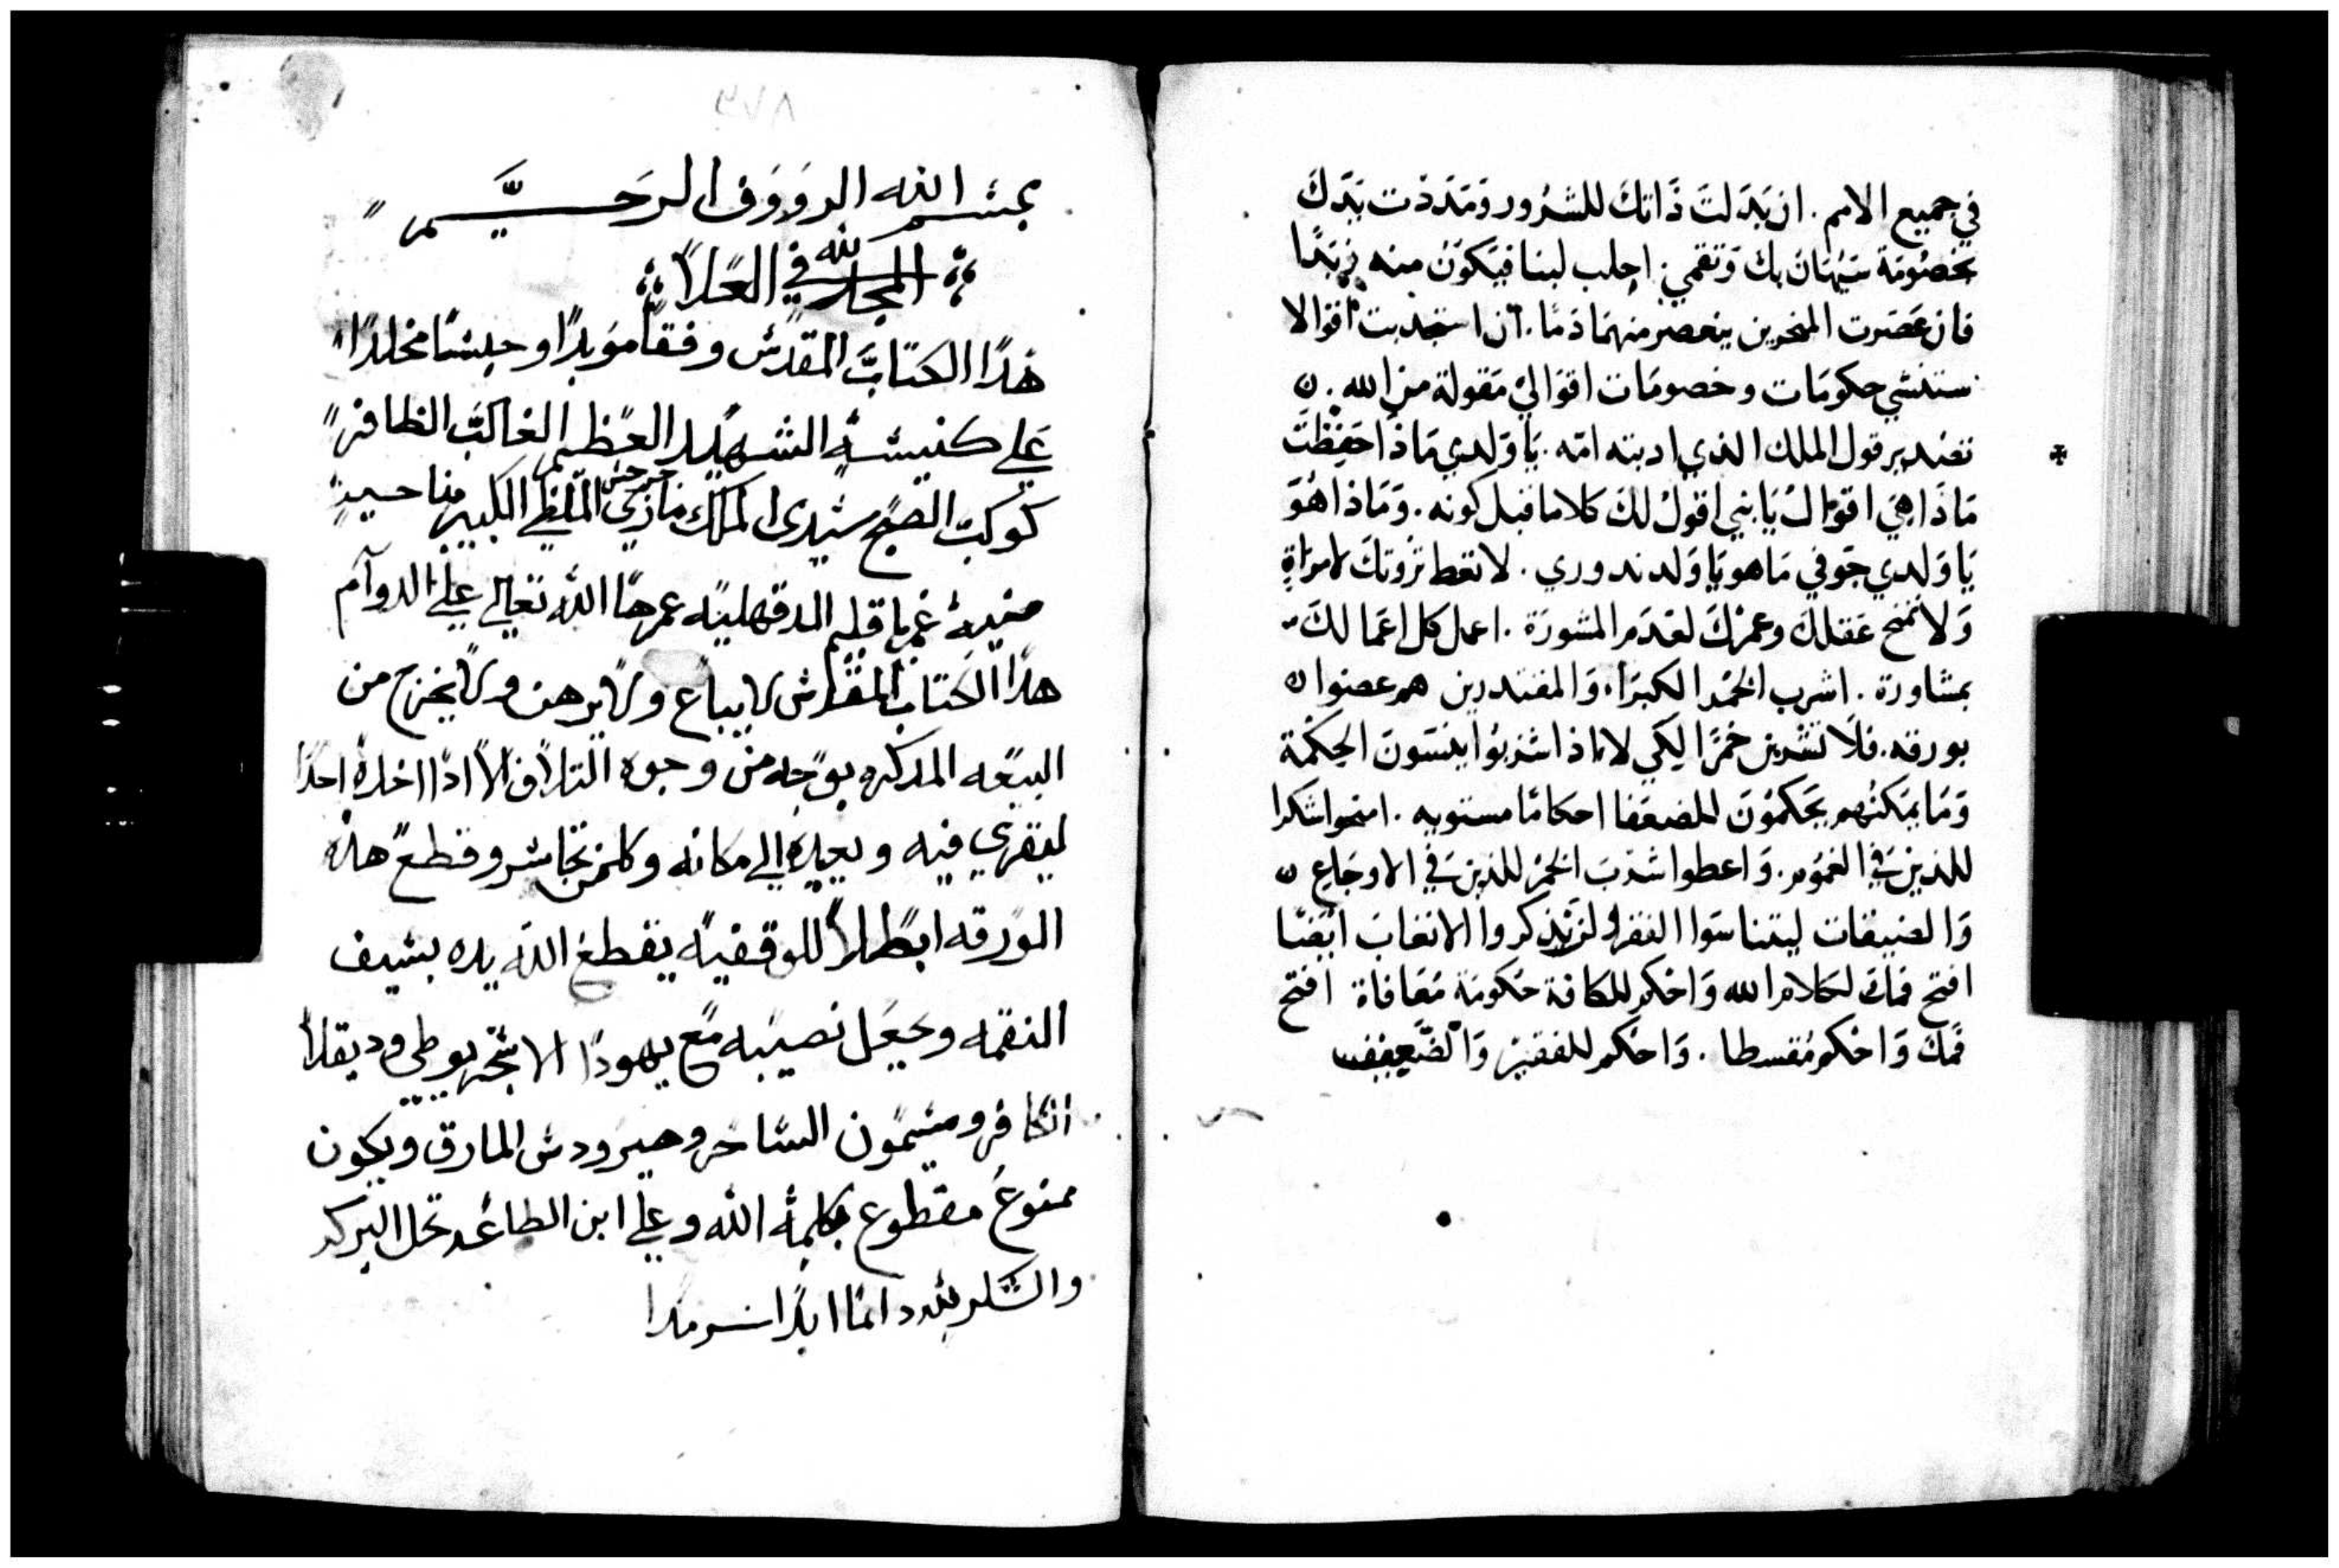 في جميع الامم. ان بَدَلتَ ذَاتك للشرور وَمَدَدْت يَدَكَ
بخصُومَة سَيُهَانُ بك وَتقمي. احلب لبنا فيَكونَ منه زبَدًا
فان عَصَرت المنخرين ينعصر منهمَا دَمًا. ان استجدبت اقوالا
ستنشي حكومَات وخصومَات اقوَالي مَقولة من الله.
قول الملك الذي ادبته امّه. يَا وَلدي مَاذا حَفِظتَ
مَاذَا هِيَ اقوَال يَا بني اقولُ لكَ كلاما قبل كونه. وَمَاذا هُوَ
يَا وَلدي جَوفي مَا هو يَا وَلد ندوري. لا تعط ثروتكَ لامرَاةٍ
وَلا تمنح عَقلكَ وعمرْكَ لعَدَم المشورَة. اعمل كل اعمَالكَ
بمشاورة. اشرب الخمر الكبرَاء وَالمقتدرين هم غضوا
بورقه. فلا تشربن خمرًا لكي لا ماذا شربُوا ينسَونَ الحِكمَة
وَمَا يمَكنهُم يَحَكمُونَ للضعَفا احكامًا مستويه. امنحوا سَكرا
للذينَ في الغمُوم. وَاعطوا شرب الخمر للذينَ في الاوجَاعِ
وَالضيقات ليتناسَوا الفقر ولا يتذكروا الاتعَابَ ايضًا
افتح فمَك لكلام الله وَاحكم للكافة حكومَة مُعَافاة افتح
فمَك وَاحكم مُقسطا. وَاحكم للفقير وَالضَّعِيف
٣٧٨
بسم الله الرووف الرحيم
المجد لله في العلا
هذا الكتاب المقدس وقفًا موبدًا وحبسًا مخلدًا
علي كنيسة الشهيد العظيم الغالب الظافر
كوكب الصبح سيدي الملك مارى جرجس الملطي الكبير بناحية
منية غمر باقليم الدقهلية عمرها الله تعالي علي الدوآم
هذا الكتاب المقدس لا يباع ولا يرهن ولا يخرج من
البيعه المدكره بوجه من وجوه التلاف الا اذا اخده احدًا
ليقرى فيه ويعيده الي مكانه وكلمن تجاسر وقطع هذه
الورقه ابطالًا للوقفيه يقطع الله يده بسيف
النقمه ويجعل نصيبه مع يهودا الاسخريوطي وديقلا
الكافر وسيمون الساحر وهيرودس المارق ويكون
ممنوع مقطوع بكلمة الله وعلي ابن الطاعه تحل البركه
والشكر لله دائمًا ابدًا سرمدا